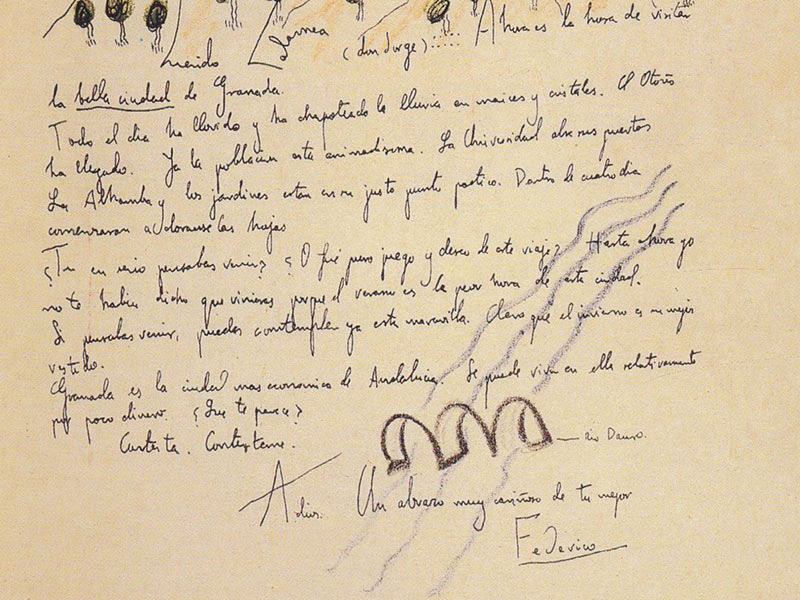 Querido Zalamea (don Jorge) :::::: Ahora es la hora de visitar
la bella ciudad de Granada.
Todo el dia ha llovido y ha chapoteado la lluvia en maices y cristales. El Otoño
ha llegado. Ya la poblacion esta animadisima. La Universidad abre sus puertas
La Alhambra y los jardines estan en su justo punto poetico. Dentro de cuatro dia
comenzaran a dorarse las hojas
¿Tu en serio pensabas venir? ¿O fué puro juego y deseo de este viaje? Hasta ahora yo
no te habia dicho que vinieras porque el verano es la peor hora de esta ciudad.
Si pensabas venir, puedes contemplar ya esta maravilla. Claro que el invierno es su mejor
vestido.
Granada es la ciudad mas economica de Andalucia. Se puede vivir en ella relativamente
por poco dinero. ¿Que te parece?
Contesta. Contestame.
rio Dauro.
Adios. Un abrazo muy cariñoso de tu mejor
Federico